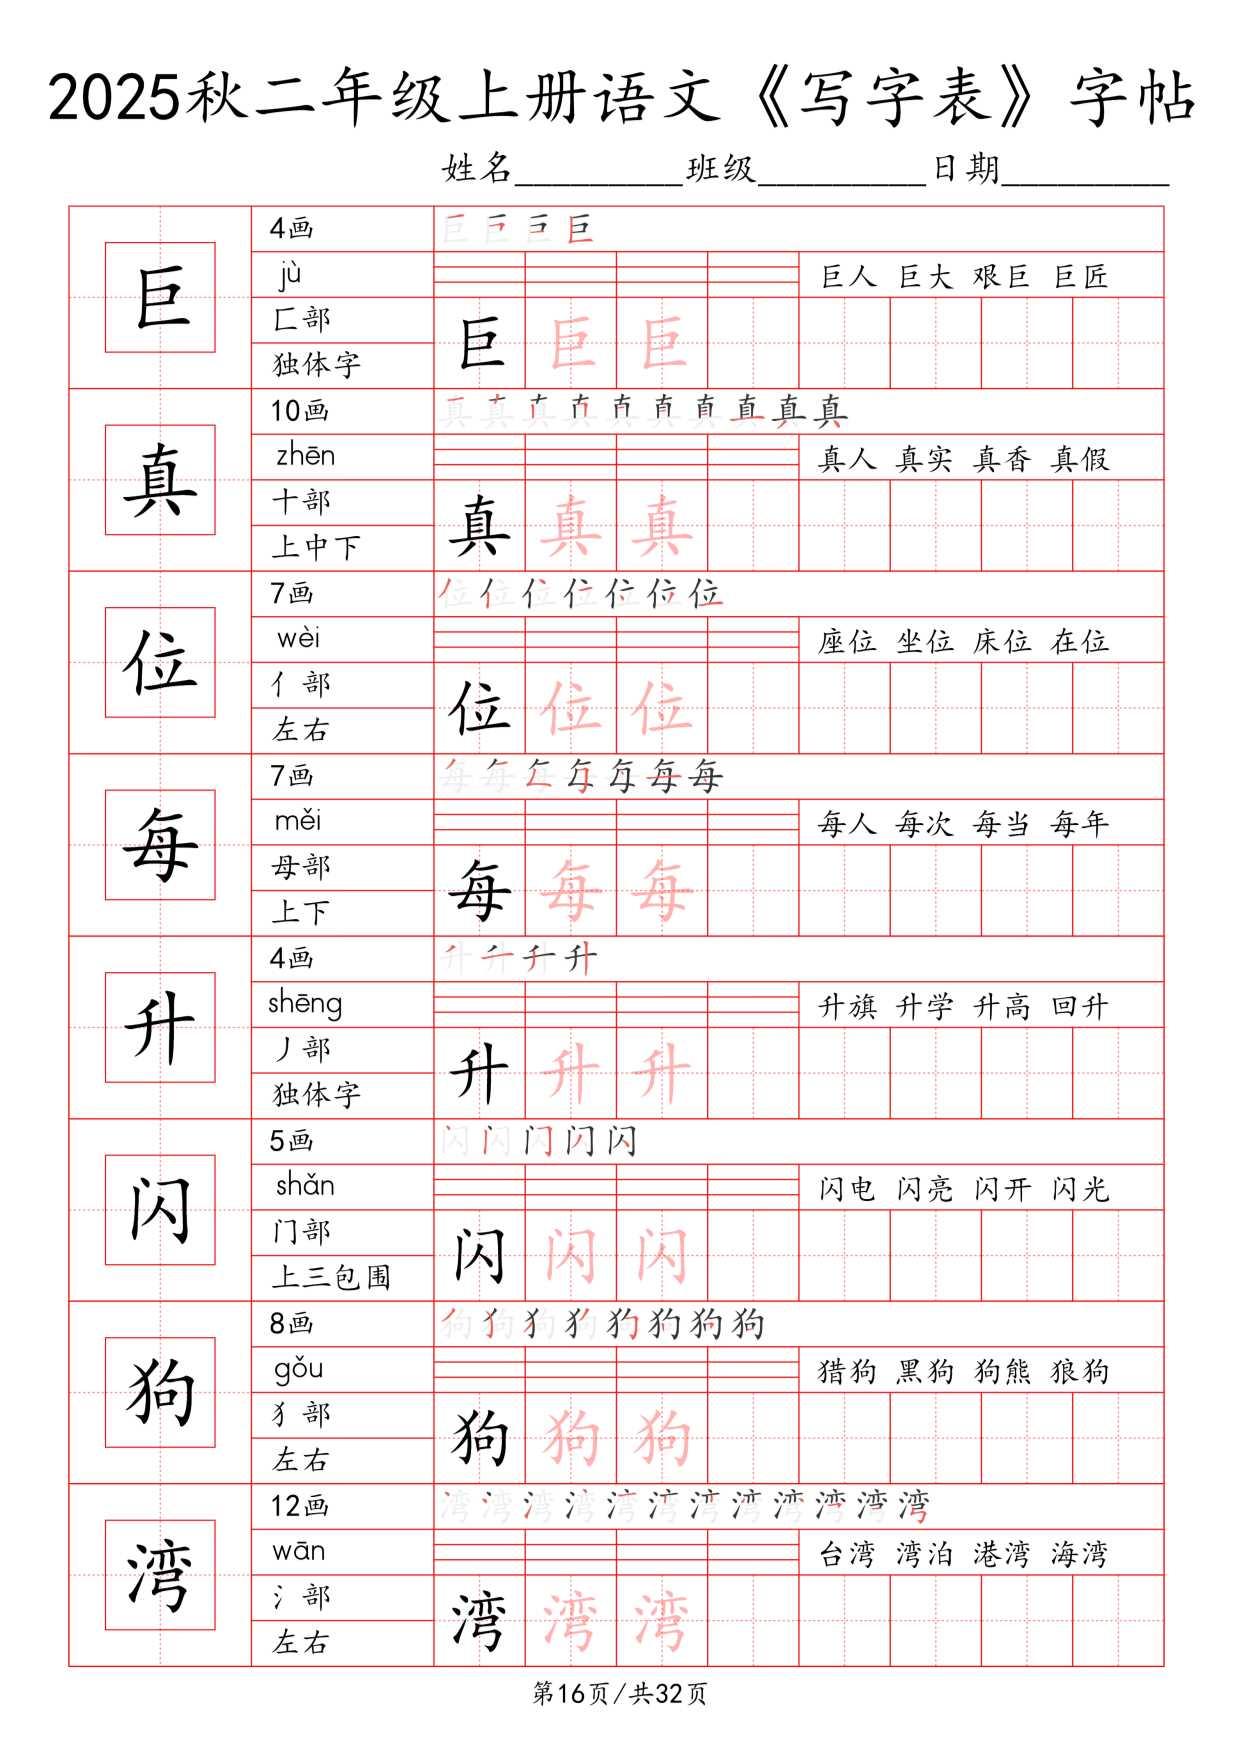 2025秋二年级上册语文《写字表》字帖
姓名_________班级_________日期_________
巨
4画
巨 巨 巨 巨
jù
巨人 巨大 艰巨 巨匠
匚部
独体字
巨 巨 巨
真
10画
真 真 真 真 真 真 真 真 真 真
zhēn
真人 真实 真香 真假
十部
上中下
真 真 真
位
7画
位 位 位 位 位 位 位
wèi
座位 坐位 床位 在位
亻部
左右
位 位 位
每
7画
每 每 每 每 每 每 每
měi
每人 每次 每当 每年
母部
上下
每 每 每
升
4画
升 升 升 升
shēng
升旗 升学 升高 回升
丿部
独体字
升 升 升
闪
5画
闪 闪 闪 闪 闪
shǎn
闪电 闪亮 闪开 闪光
门部
上三包围
闪 闪 闪
狗
8画
狗 狗 狗 狗 狗 狗 狗 狗
gǒu
猎狗 黑狗 狗熊 狼狗
犭部
左右
狗 狗 狗
湾
12画
湾 湾 湾 湾 湾 湾 湾 湾 湾 湾 湾 湾
wān
台湾 湾泊 港湾 海湾
氵部
左右
湾 湾 湾
第16页/共32页